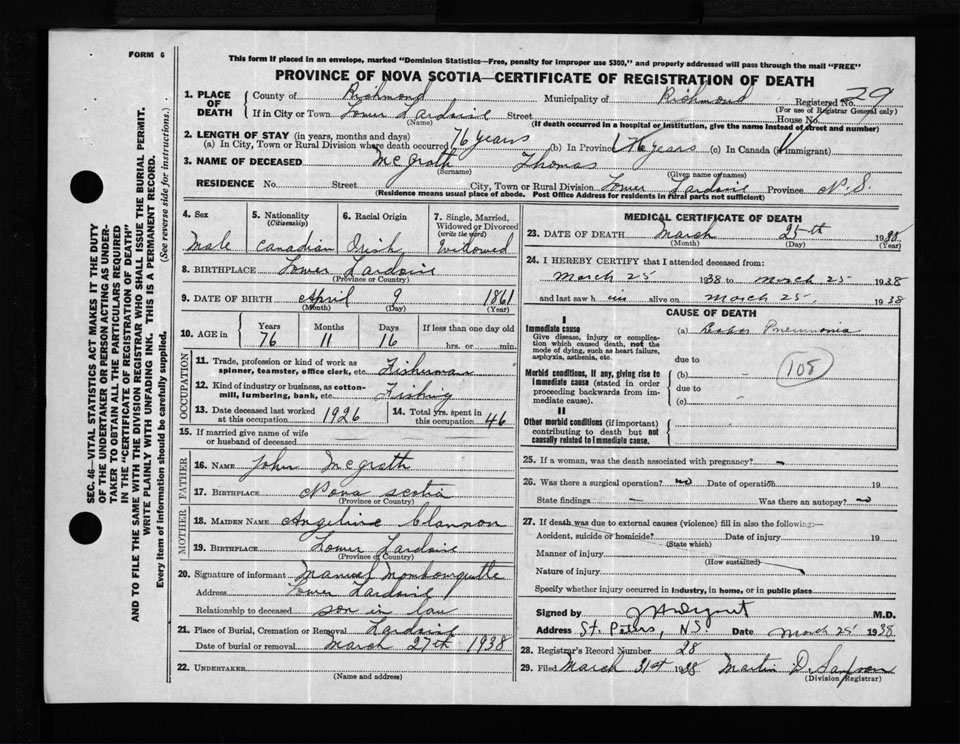 FORM 6
This form if placed in an envelope, marked "Dominion Statistics—Free, penalty for improper use $300," and properly addressed will pass through the mail "FREE"
PROVINCE OF NOVA SCOTIA—CERTIFICATE OF REGISTRATION OF DEATH
SEC. 46—VITAL STATISTICS ACT MAKES IT THE DUTY
OF THE UNDERTAKER OR PERSON ACTING AS UNDER-
TAKER TO OBTAIN ALL THE PARTICULARS REQUIRED
IN THE "CERTIFICATE OF REGISTRATION OF DEATH"
AND TO FILE THE SAME WITH THE DIVISION REGISTRAR WHO SHALL ISSUE THE BURIAL PERMIT.
WRITE PLAINLY WITH UNFADING INK. THIS IS A PERMANENT RECORD.
Every item of information should be carefully supplied. (See reverse side for instructions.)
1. PLACE OF DEATH County of Richmond Municipality of Richmond Registered No. 29
(For use of Registrar General only)
If in City or Town Lower L'Ardoise Street House No.
(Name) (If death occurred in a hospital or institution, give the name instead of street and number)
2. LENGTH OF STAY (in years, months and days)
(a) In City, Town or Rural Division where death occurred 76 years (b) In Province 76 years (c) In Canada (if immigrant)
3. NAME OF DECEASED McGrath Thomas
(Surname) (Given name or names)
RESIDENCE No. Street City, Town or Rural Division Lower L'Ardoise Province N.S.
(Residence means usual place of abode. Post Office Address for residents in rural parts not sufficient)
4. Sex Male
5. Nationality (Citizenship) Canadian
6. Racial Origin Irish
7. Single, Married, Widowed or Divorced (write the word) Widowed
8. BIRTHPLACE Lower L'Ardoise
(Province or Country)
9. DATE OF BIRTH April 9 1861
(Month) (Day) (Year)
10. AGE in Years 76 Months 11 Days 16 If less than one day old hrs. or min.
OCCUPATION
11. Trade, profession or kind of work as spinner, teamster, office clerk, etc. Fisherman
12. Kind of industry or business, as cotton-mill, lumbering, bank, etc. Fishing
13. Date deceased last worked at this occupation 1926
14. Total yrs. spent in this occupation 46
15. If married give name of wife or husband of deceased
FATHER
16. NAME John McGrath
17. BIRTHPLACE Nova Scotia
(Province or Country)
MOTHER
18. MAIDEN NAME Angeline Clannon
19. BIRTHPLACE Lower L'Ardoise
(Province or Country)
20. Signature of informant Manuel Mombourquette
Address Lower L'Ardoise
Relationship to deceased son in law
21. Place of Burial, Cremation or Removal L'Ardoise
Date of burial or removal March 27th 1938
22. UNDERTAKER
(Name and address)
MEDICAL CERTIFICATE OF DEATH
23. DATE OF DEATH March 25th 1938
(Month) (Day) (Year)
24. I HEREBY CERTIFY that I attended deceased from:
March 25 1938 to March 25 1938
and last saw him alive on March 25 1938
CAUSE OF DEATH
I
Immediate cause
Give disease, injury or complication which caused death, not the mode of dying, such as heart failure, asphyxia, asthenia, etc.
(a) Lobar Pneumonia
due to
Morbid conditions, if any, giving rise to immediate cause (stated in order proceeding backwards from immediate cause).
(b)
108
due to
(c)
II
Other morbid conditions (if important) contributing to death but not causally related to immediate cause.
25. If a woman, was the death associated with pregnancy?
26. Was there a surgical operation? no Date of operation 19
State findings Was there an autopsy? no
27. If death was due to external causes (violence) fill in also the following:—
Accident, suicide or homicide? Date of injury 19
(State which)
Manner of injury
(How sustained)
Nature of injury
Specify whether injury occurred in industry, in home, or in public place
Signed by M.D.
Address St. Peters, N.S. Date March 25 1938
28. Registrar's Record Number 28
29. Filed March 31st 1938 Martin D. Sampson
(Division Registrar)